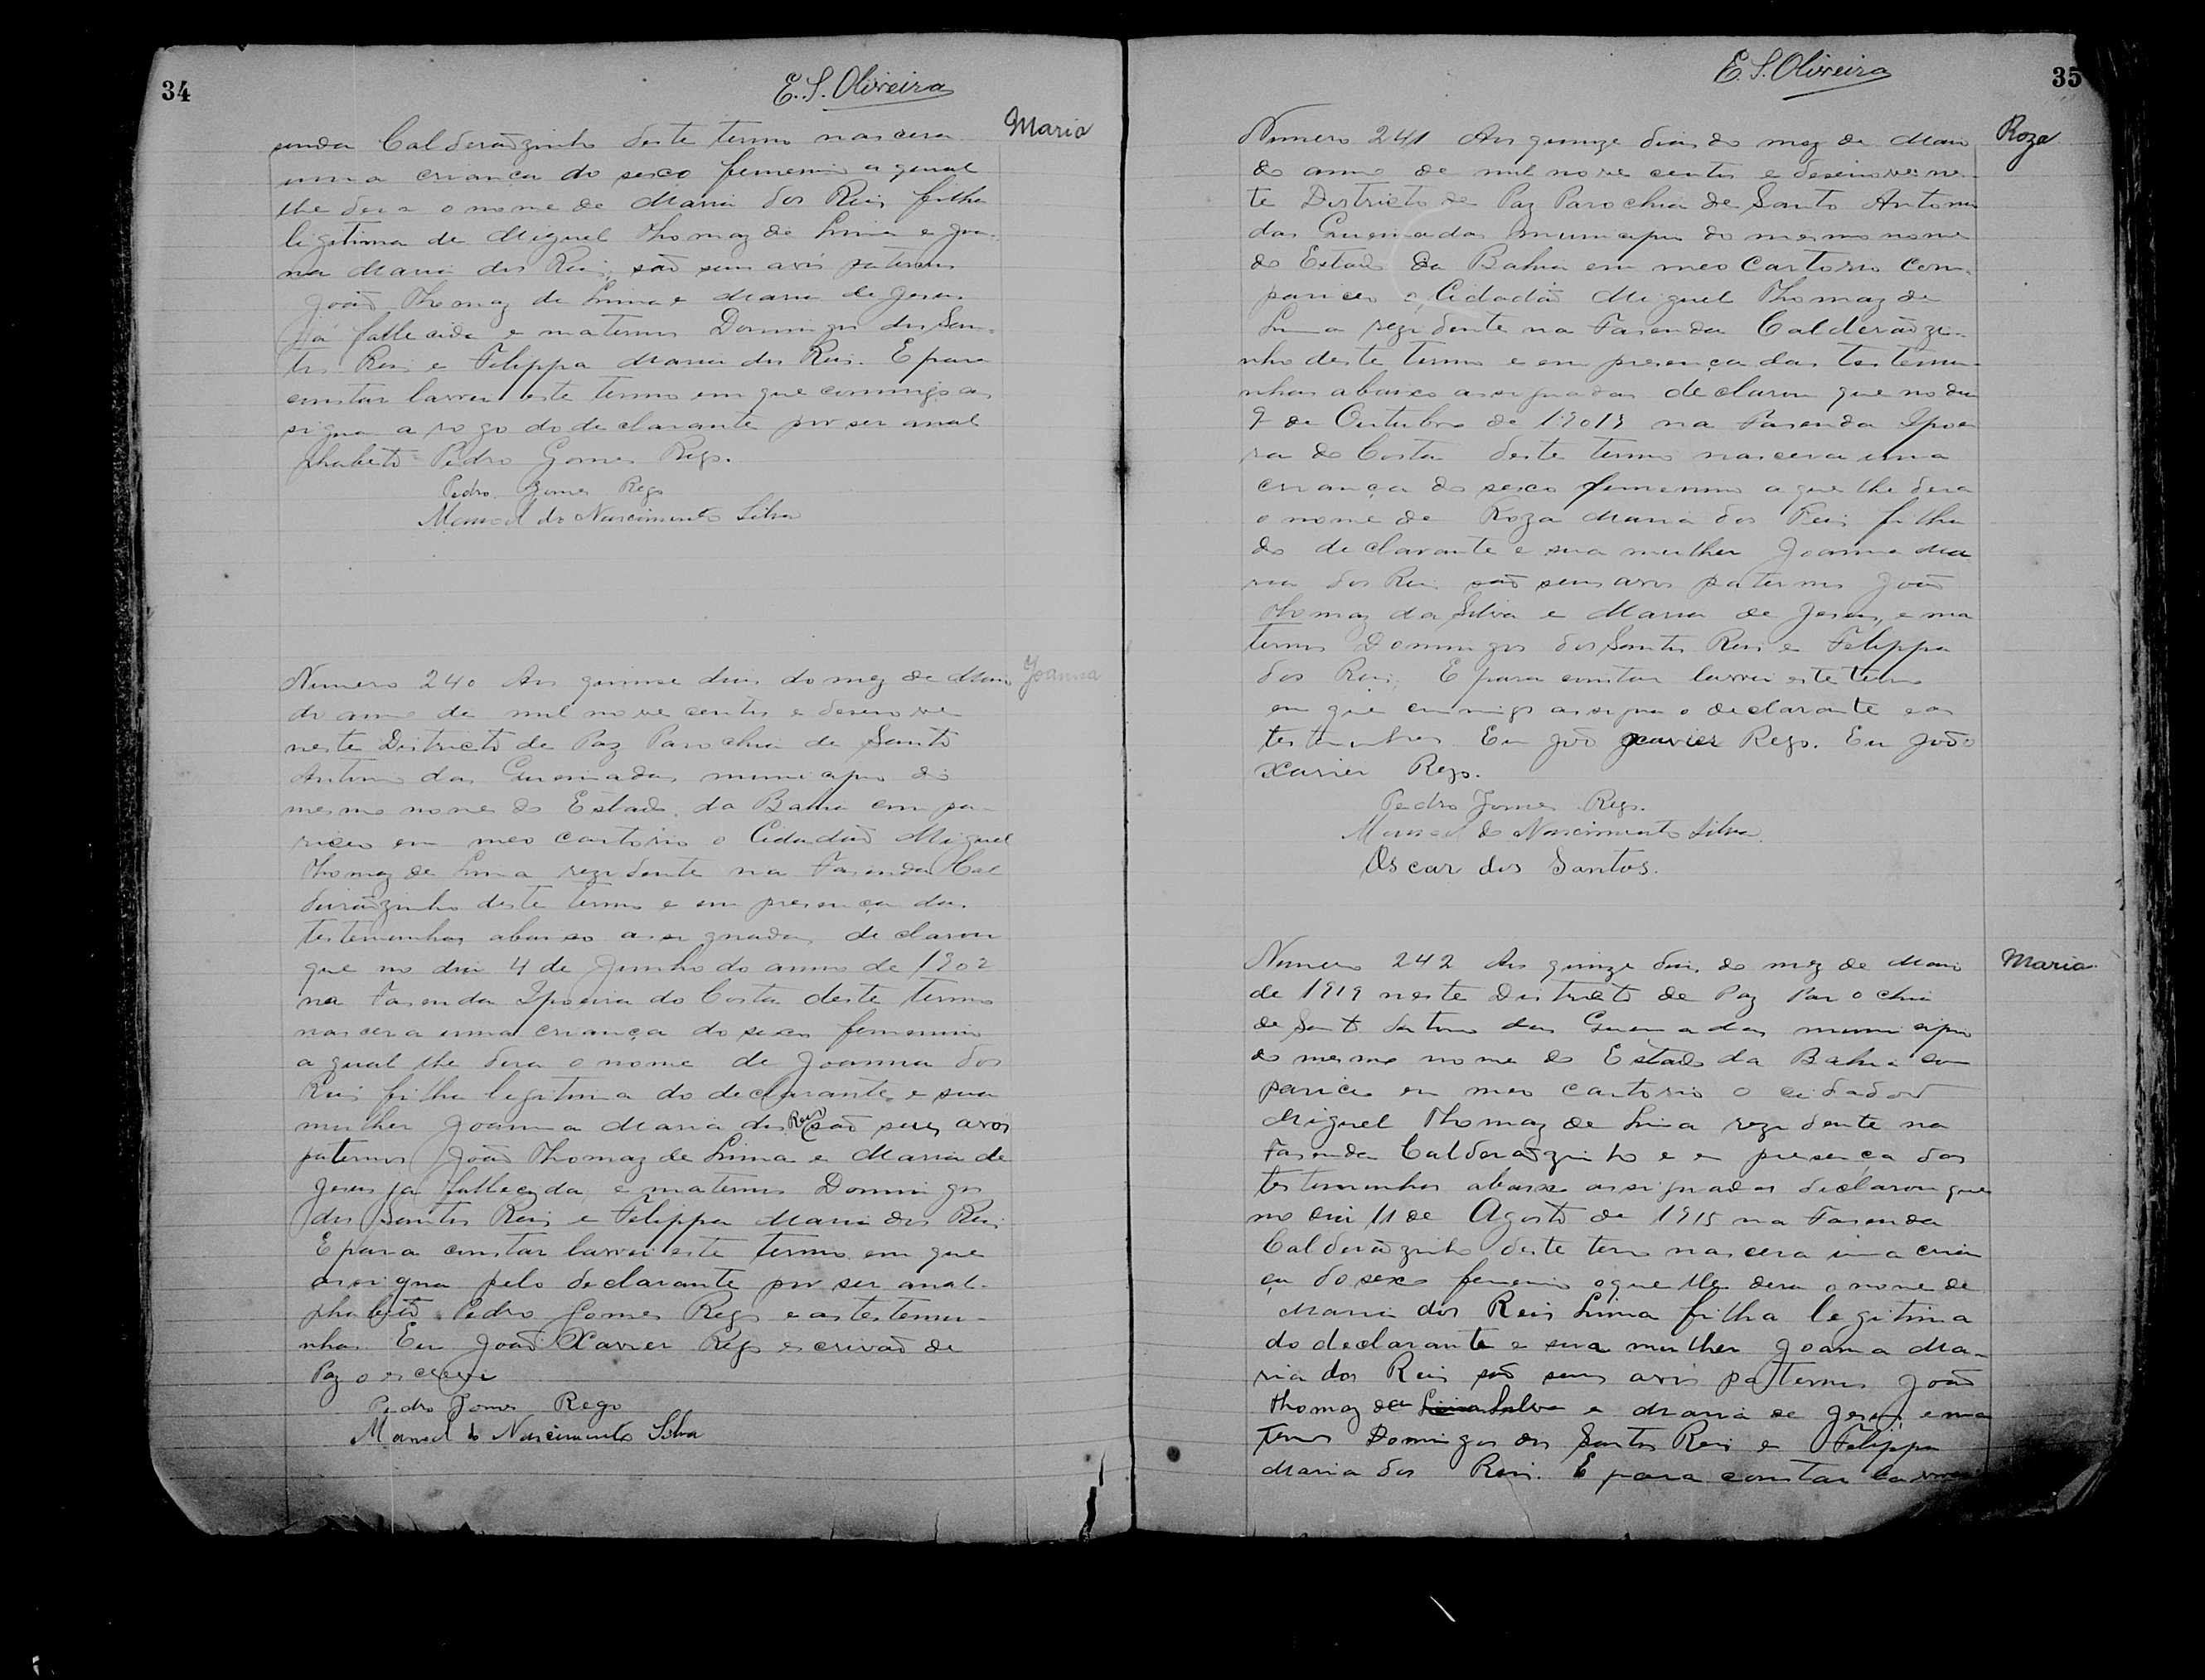 34
E. S. Oliveira
senda Calderãozinho deste termo nascera
Maria
uma criança do sexo femenino a qual
lhe dera o nome de Maria dos Reis filha
legitima de Miguel Thomaz de Lima e Joa-
na Maria dos Reis, são seus avós paternos
João Thomaz de Lima e Maria de Jesus
já fallecida e maternos Domingos dos San-
tos Reis e Felippa Maria dos Reis. E para
constar lavrei este termo em que commigo as
signa a rogo do declarante por ser anal
phabeto Pedro Gomes Rego.
Pedro Gomes Rego
Manoel do Nascimento Silva
Numero 240 Aos quinse dias do mez de Maio
Joanna
do anno de mil nove centos e desenove
neste Districto de Paz Parochia de Santo
Antonio das Queimadas municipio do
mesmo nome do Estado da Bahia compa-
receu em meo cartorio o Cidadão Miguel
Thomaz de Lima rezidente na Fasenda Cal
deirãozinho deste termo e em presença das
testemunhas abaixo assignadas declarou
que no dia 4 de Junho do anno de 1902
na Fasenda Ipoeira do Costa deste termo
nascera uma criança do sexo femenino
a qual lhe dera o nome de Joanna dos
Reis filha legitima do declarante e sua
mulher Joanna Maria dos Reis são seus avós
paternos João Thomaz de Lima e Maria de
Jesus ja fallecyda e maternos Domingos
dos Santos Reis e Felippa Maria dos Reis.
E para constar lavrei este termo em que
assigna pelo declarante por ser anal-
phabeto Pedro Gomes Rego e as testemu-
nhas. Eu João Xavier Rego escrivão de
Paz o escrevi
Pedro Gomes Rego
Manoel do Nascimento Silva
E. S. Oliveira
35
Numero 241 Aos quinze dias do mez de Maio
Roza
do anno de mil nove centos e desenove nes-
te Districto de Paz Parochia de Santo Antonio
das Queimadas municipio do mesmo nome
do Estado da Bahia em meo Cartorio com-
pareceu o Cidadão Miguel Thomaz de
Lima rezidente na Fasenda Calderãozi-
nho deste termo e em presença das testemu-
nhas abaixo assignadas declarou que no dia
9 de Outubro de na Fasenda Ipoei
ra do Costa deste termo nascera uma
criança do sexo femenino a que lhe dera
o nome de Roza Maria dos Reis filha
do declarante e sua mulher Joanna Ma
ria dos Reis são seus avos paternos João
Thomaz da Silva e Maria de Jesus, e ma
ternos Domingos dos Santos Reis e Felippa
dos Reis. E para constar lavrei este termo
em que commigo assigna o declarante e as
testemunhas Eu João Xavier Rego. Eu João
Xavier Rego.
Pedro Gomes Rego.
Manoel do Nascimento Silva.
Oscar dos Santos.
Numero 242 Aos quinze dias do mez de Maio
Maria
de 1919 neste Districto de Paz Parochia
de Santo Antonio das Queimadas municipio
do mesmo nome do Estado da Bahia com
pareceu em meo cartorio o cidadão
Miguel Thomaz de Lima rezidente na
Fasenda Calderãozinho e em presença das
testemunhas abaixo assignadas declarou que
no dia 11 de Agosto de 1915 na Fasenda
Calderãozinho deste termo nascera uma crian
ça do sexo femenino a que lhe dera o nome de
Maria dos Reis Lima filha legitima
do declarante e sua mulher Joanna Ma-
ria dos Reis são seus avós paternos João
Thomaz da Lima Silva e Maria de Jesus, e ma
ternos Domingos dos Santos Reis e Felippa
Maria dos Reis. E para constar lavrei